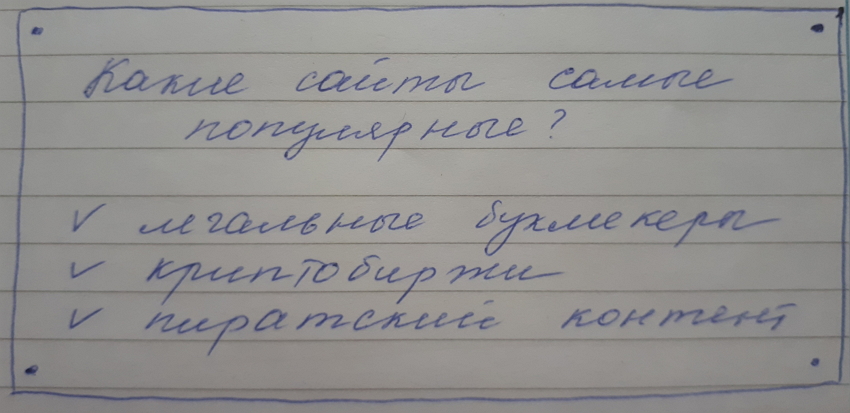 Какие сайты самые
популярные?
✓ легальные букмекеры
✓ криптобиржи
✓ пиратский контент